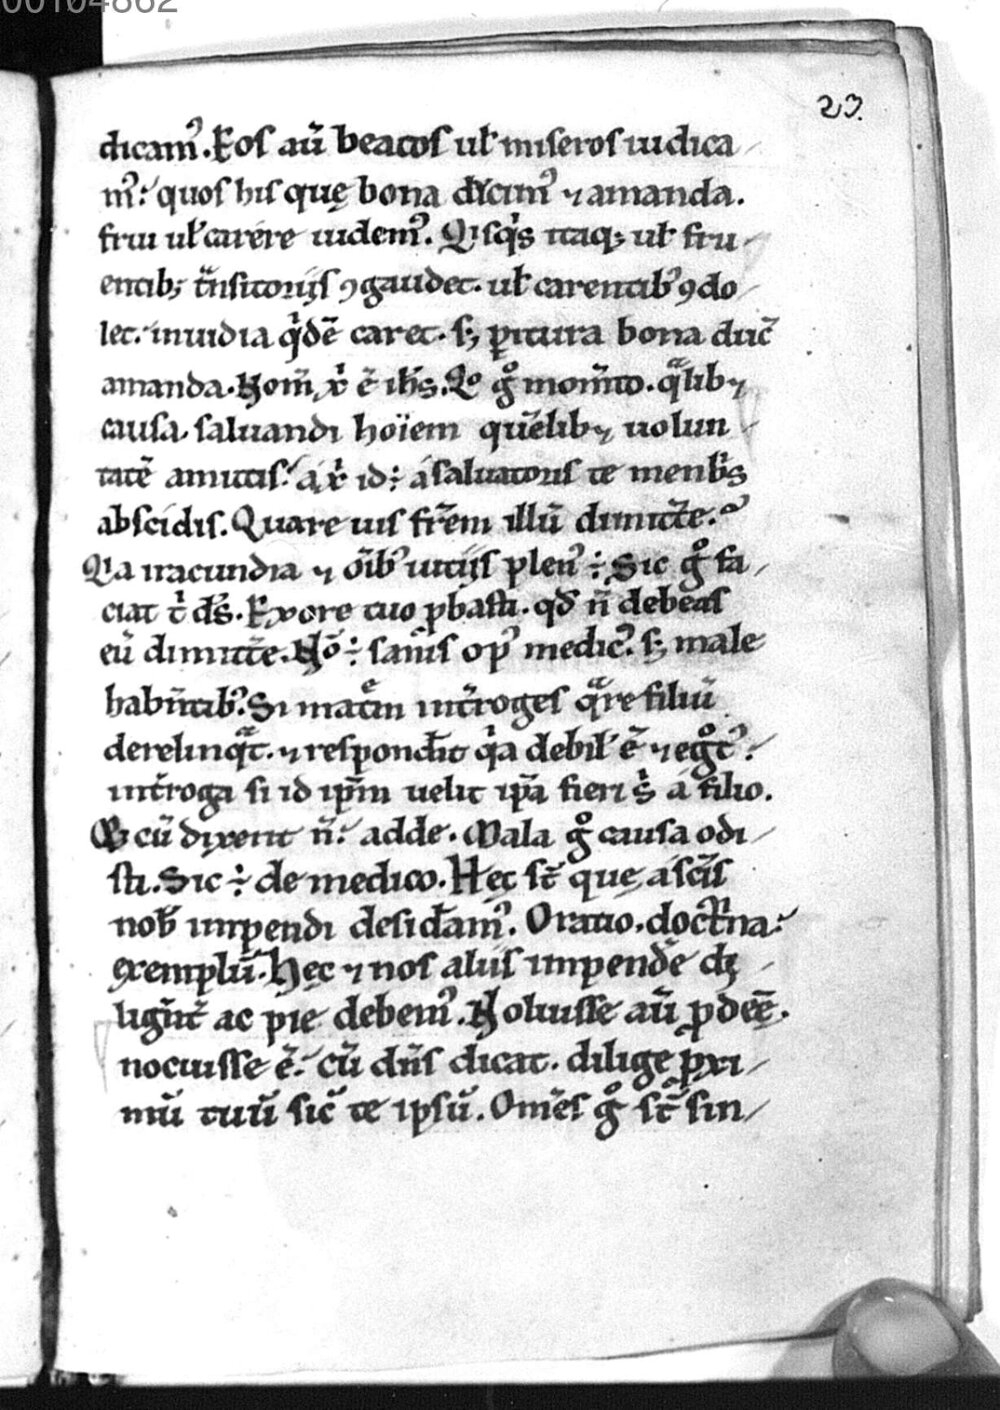 00104862
23.
dicam᷒. Eos aũ beatos uł miseros iudica
m᷒: quos his quę bona dicim᷒ ⁊ amanda.
frui uł carére uidem᷒. Quisqͥs itaq; uł fru
entib; tͣnsitorijs ꝯgaudet. uł carentib᷒ ꝯdo
let: inuidia qͥdẽ caret. s; ꝑitura bona ducͭ
amanda. Homĩ xͥ ẽ ih̃s. Qͦ gͦ momẽto. qͣlib⁊
causa. saluandi hoïem quẽlib⁊ uolun
tatẽ amittis: á xͥ id÷ á saluatoris te menbͥs
abscidis. Quare uis fr̃em illũ dimitt̃e.
Qͥa iracundia ⁊ oĩb᷒ uitijs plen᷒ ÷ Sic gͦ fa
ciat tͥ d̃s. Exore tuo ꝓbasti. qđ ñ debeas
eũ dimitt̃e. Nõ ÷ sanis op᷒ medic᷒. s; male
habñtib᷒. Si matrem int̃roges qͣre filiũ
derelinqͣt. ⁊ respondit qͥa debił ẽ ⁊ egͦt᷒:
int̃roga si id ip̃m uelit ip̃a fieri sͥ á filio.
Qđ cũ dixerit ñ: adde. Mala gͦ causa odi
sti. Sic ÷ de medico. Hęc st̃ quę á sc̃is
nob̃ impendi desiđam᷒. Oratio. doctͥna:
exemplũ. Hęc ⁊ nos alijs impendẽ dį
ligñt̃ ac pie debem᷒. Noluisse aũ ꝓdeẽ.
nocuisse ẽ: cũ dñs dicat. dilige ꝓxi
mũ tuũ sic̃ te ipsũ. Omẽs gͦ st̃ sin